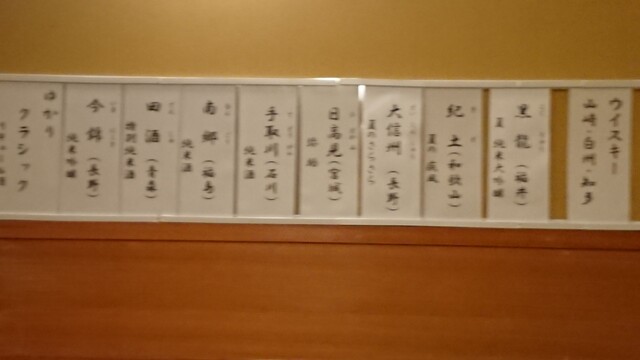 ウイスキー
山崎・白州・知多
黒龍（福井）
夏 純米大吟醸
紀土（和歌山）
夏の疾風
大信州（長野）
夏のさらさら
日高見（宮城）
弥助
手取川（石川）
純米酒
南郷（福島）
純米酒
田酒（青森）
特別純米酒
今錦（長野）
純米吟醸
ゆがり
クラシック